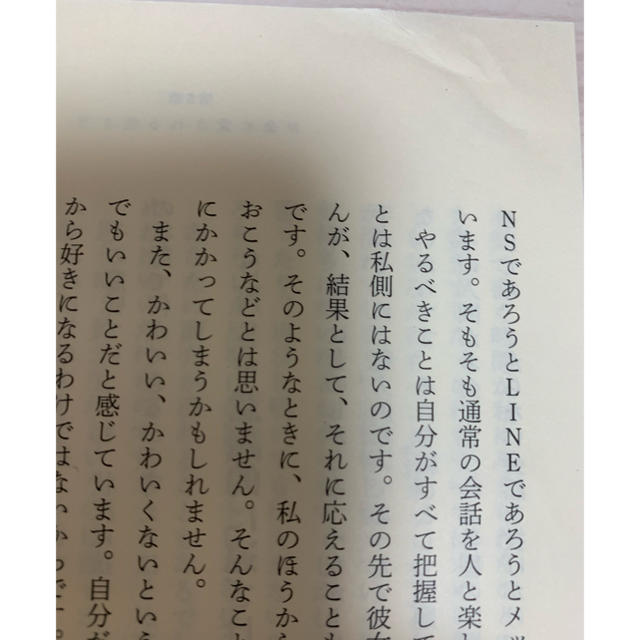 NSであろうとLINEであろうとメッ
います。そもそも通常の会話を人と楽し
やるべきことは自分がすべて把握して
とは私側にはないのです。その先で彼女
んが、結果として、それに応えることも
です。そのようなときに、私のほうから
おこうなどとは思いません。そんなこと
にかかってしまうかもしれません。
また、かわいい、かわいくないという
でもいいことだと感じています。自分が
から好きになるわけではないからです。